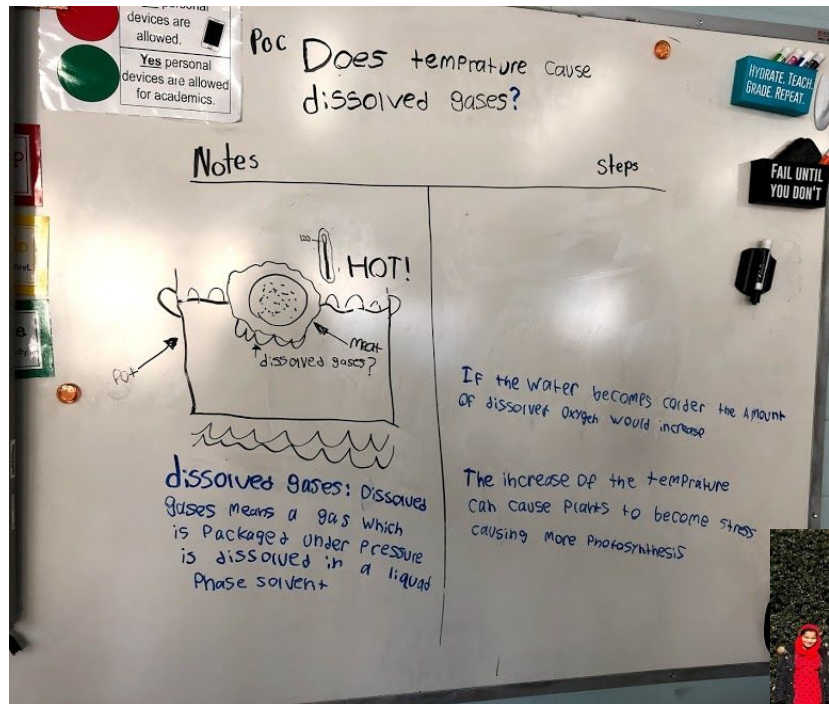 personal
devices are
allowed.
Yes personal
devices are allowed
for academics.
Poc
Does temprature cause
dissolved gases?
HYDRATE. TEACH.
GRADE. REPEAT.
FAIL UNTIL
YOU DON'T
Notes
Steps
120
HOT!
meat
dissolved gases?
Pot
dissolved gases: Dissolved
gases means a gas which
is Packaged under Pressure
is dissolved in a liquad
Phase solvent
If the water becomes colder the amount
of dissolved oxygen would increase
The increase of the temprature
can cause Plants to become stress
causing more Photosynthesis